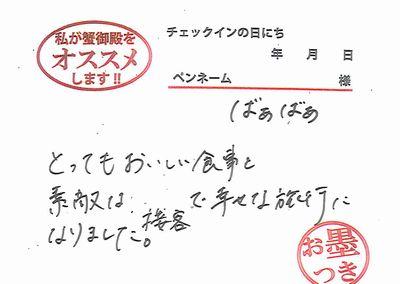 私が蟹御殿を
オススメ
します!!
チェックインの日にち
年 月 日
ペンネーム 様
ばぁばぁ
とってもおいしい食事と
素敵な接客で幸せな旅行に
なりました。
お墨
つき